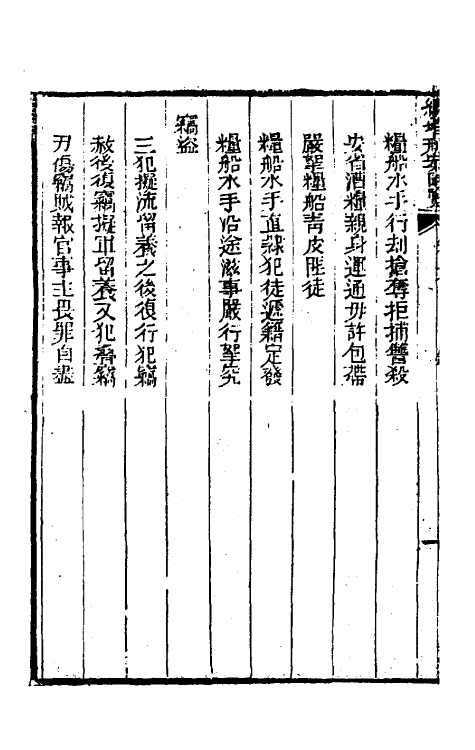 糧船水手行刦搶奪拒捕讐殺
安省漕糧親身運通毋許包帶
嚴拏糧船靑皮匪徒
糧船水手直隸犯徒遞籍定發
糧船水手沿途滋事嚴行拏究
竊盜
三犯擬流留養之後復行犯竊
赦後復竊擬軍留養又犯行竊
刃傷竊賊報官事主畏罪自盡